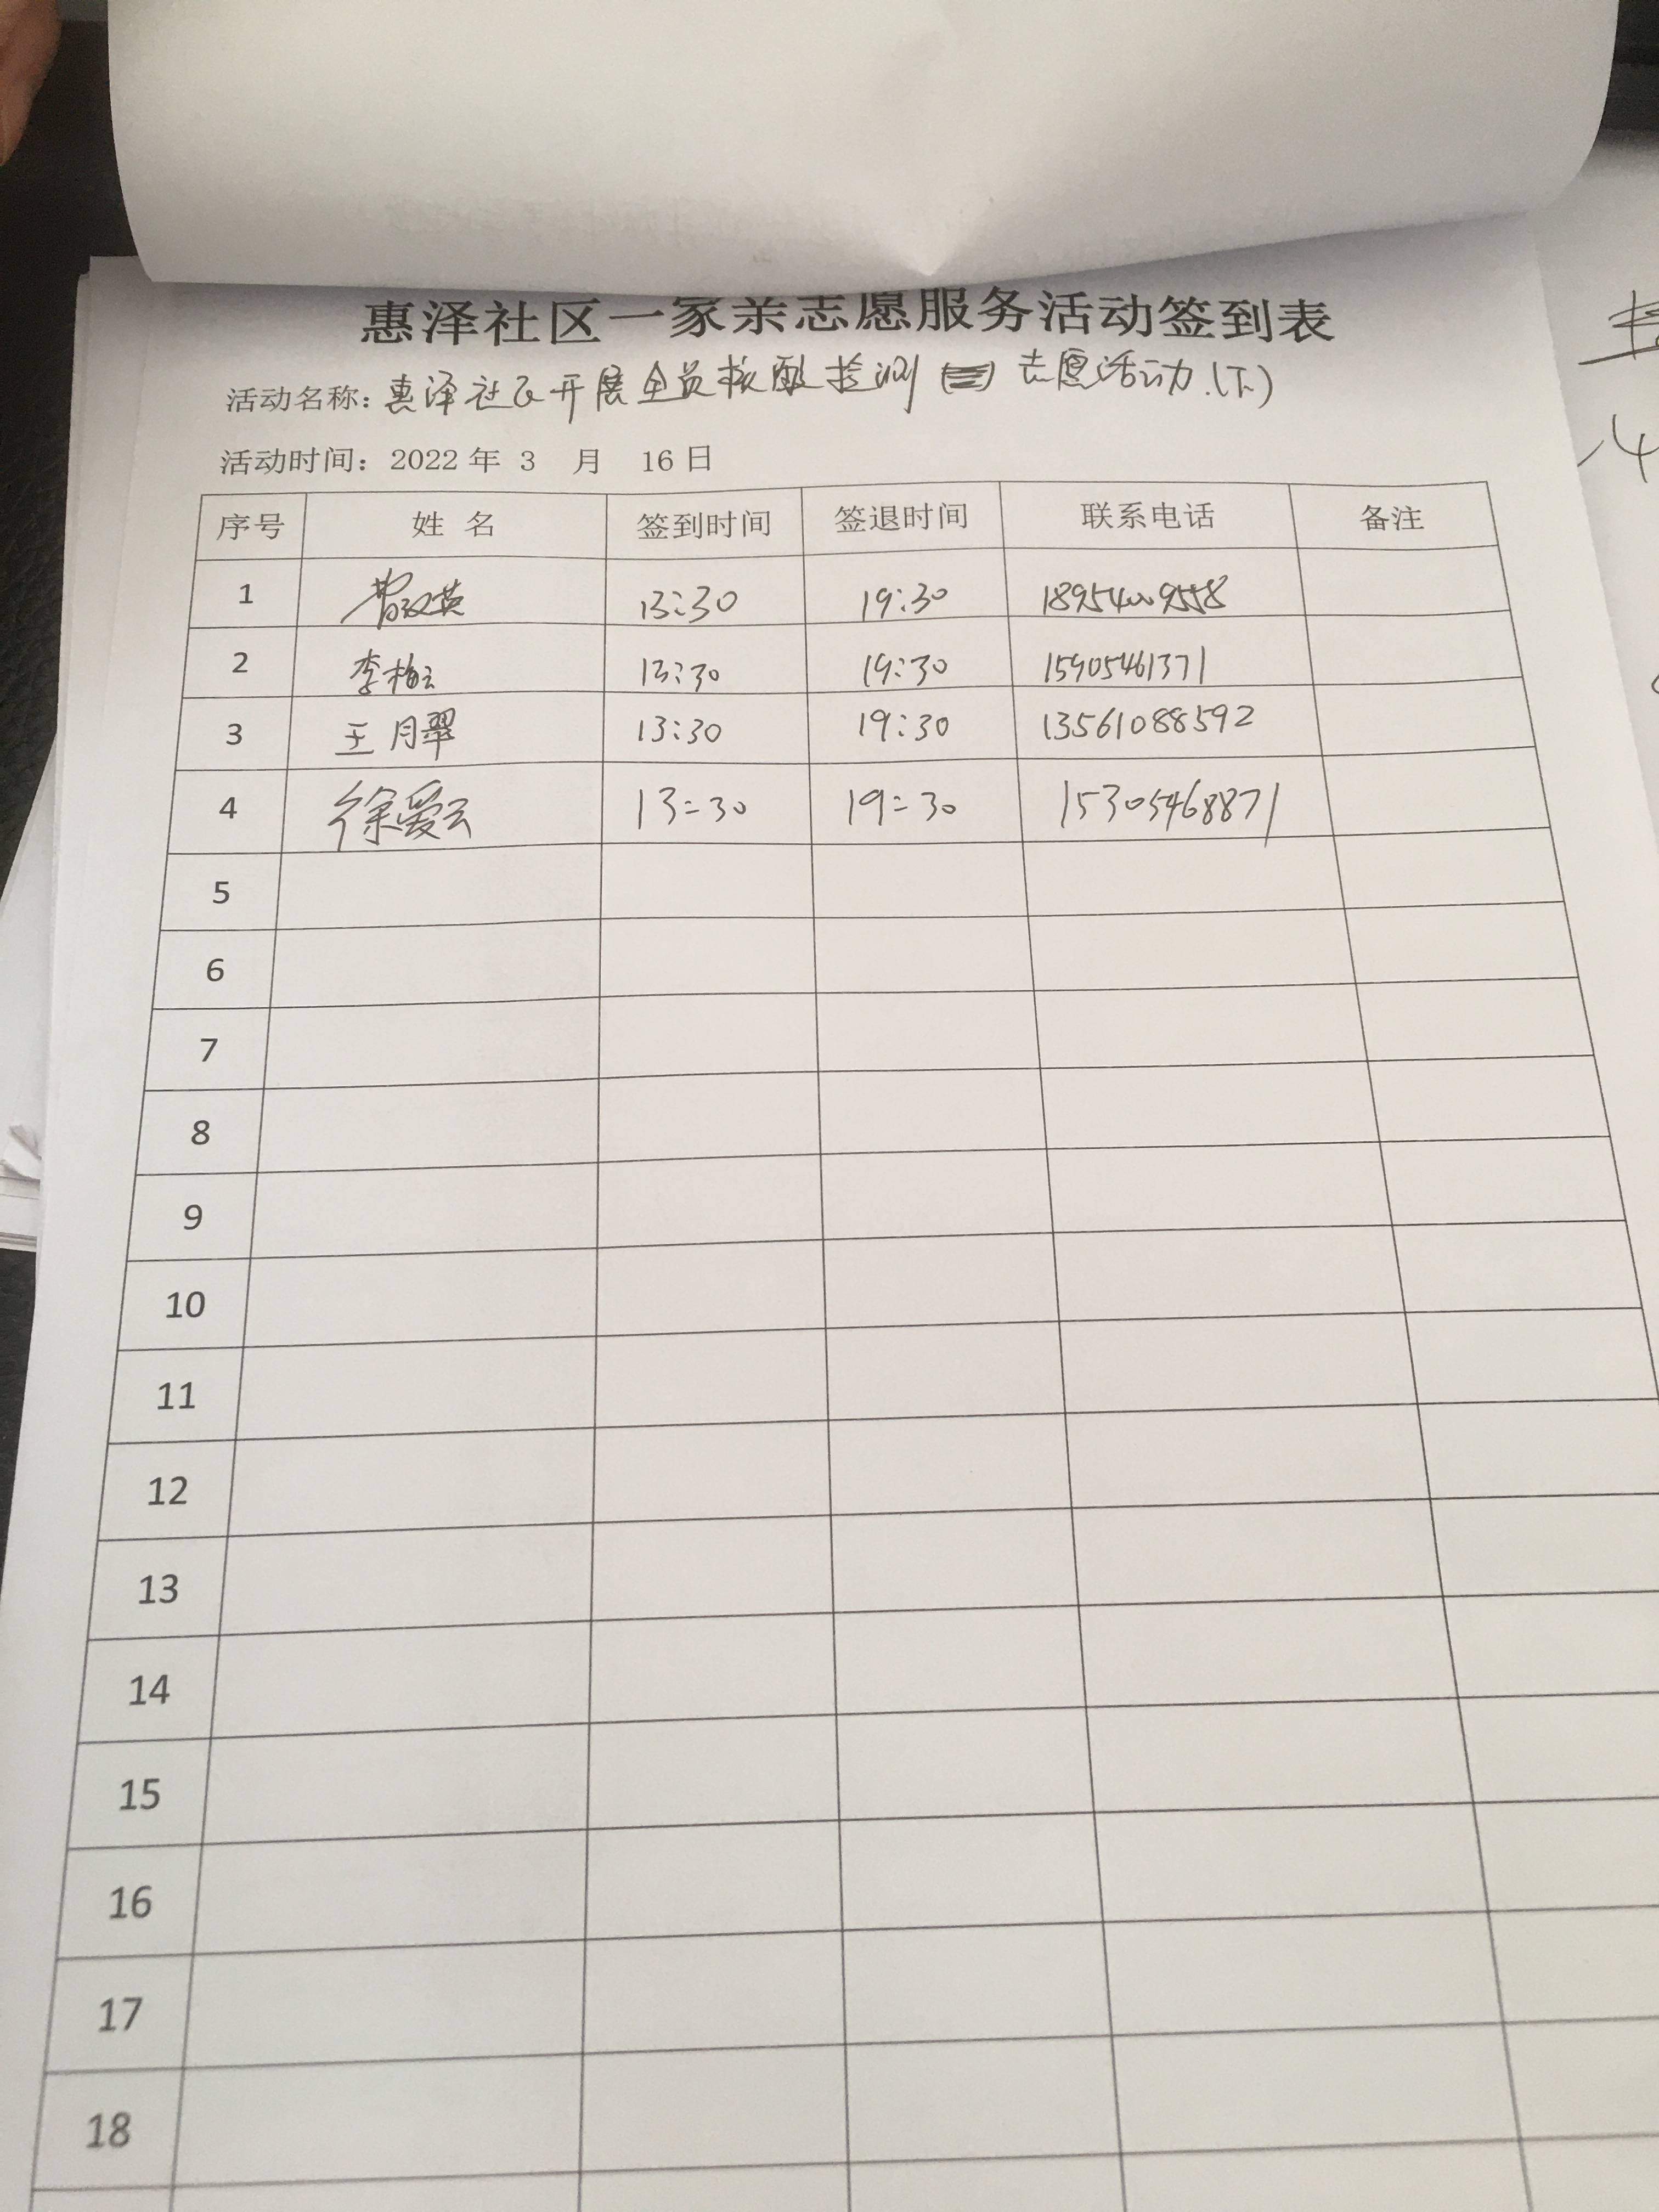 惠泽社区一家亲志愿服务活动签到表
活动名称：惠泽社区开展全员核酸检测 志愿活动.(下)
活动时间：2022 年 3 月 16 日
序号 姓 名 签到时间 签退时间 联系电话 备注
1 13:30 19:30
2 李梅云 13:30 19:30 15905461371
3 王月翠 13:30 19:30 13561088592
4 徐爱云 13:30 19:30 15305468871
5
6
7
8
9
10
11
12
13
14
15
16
17
18